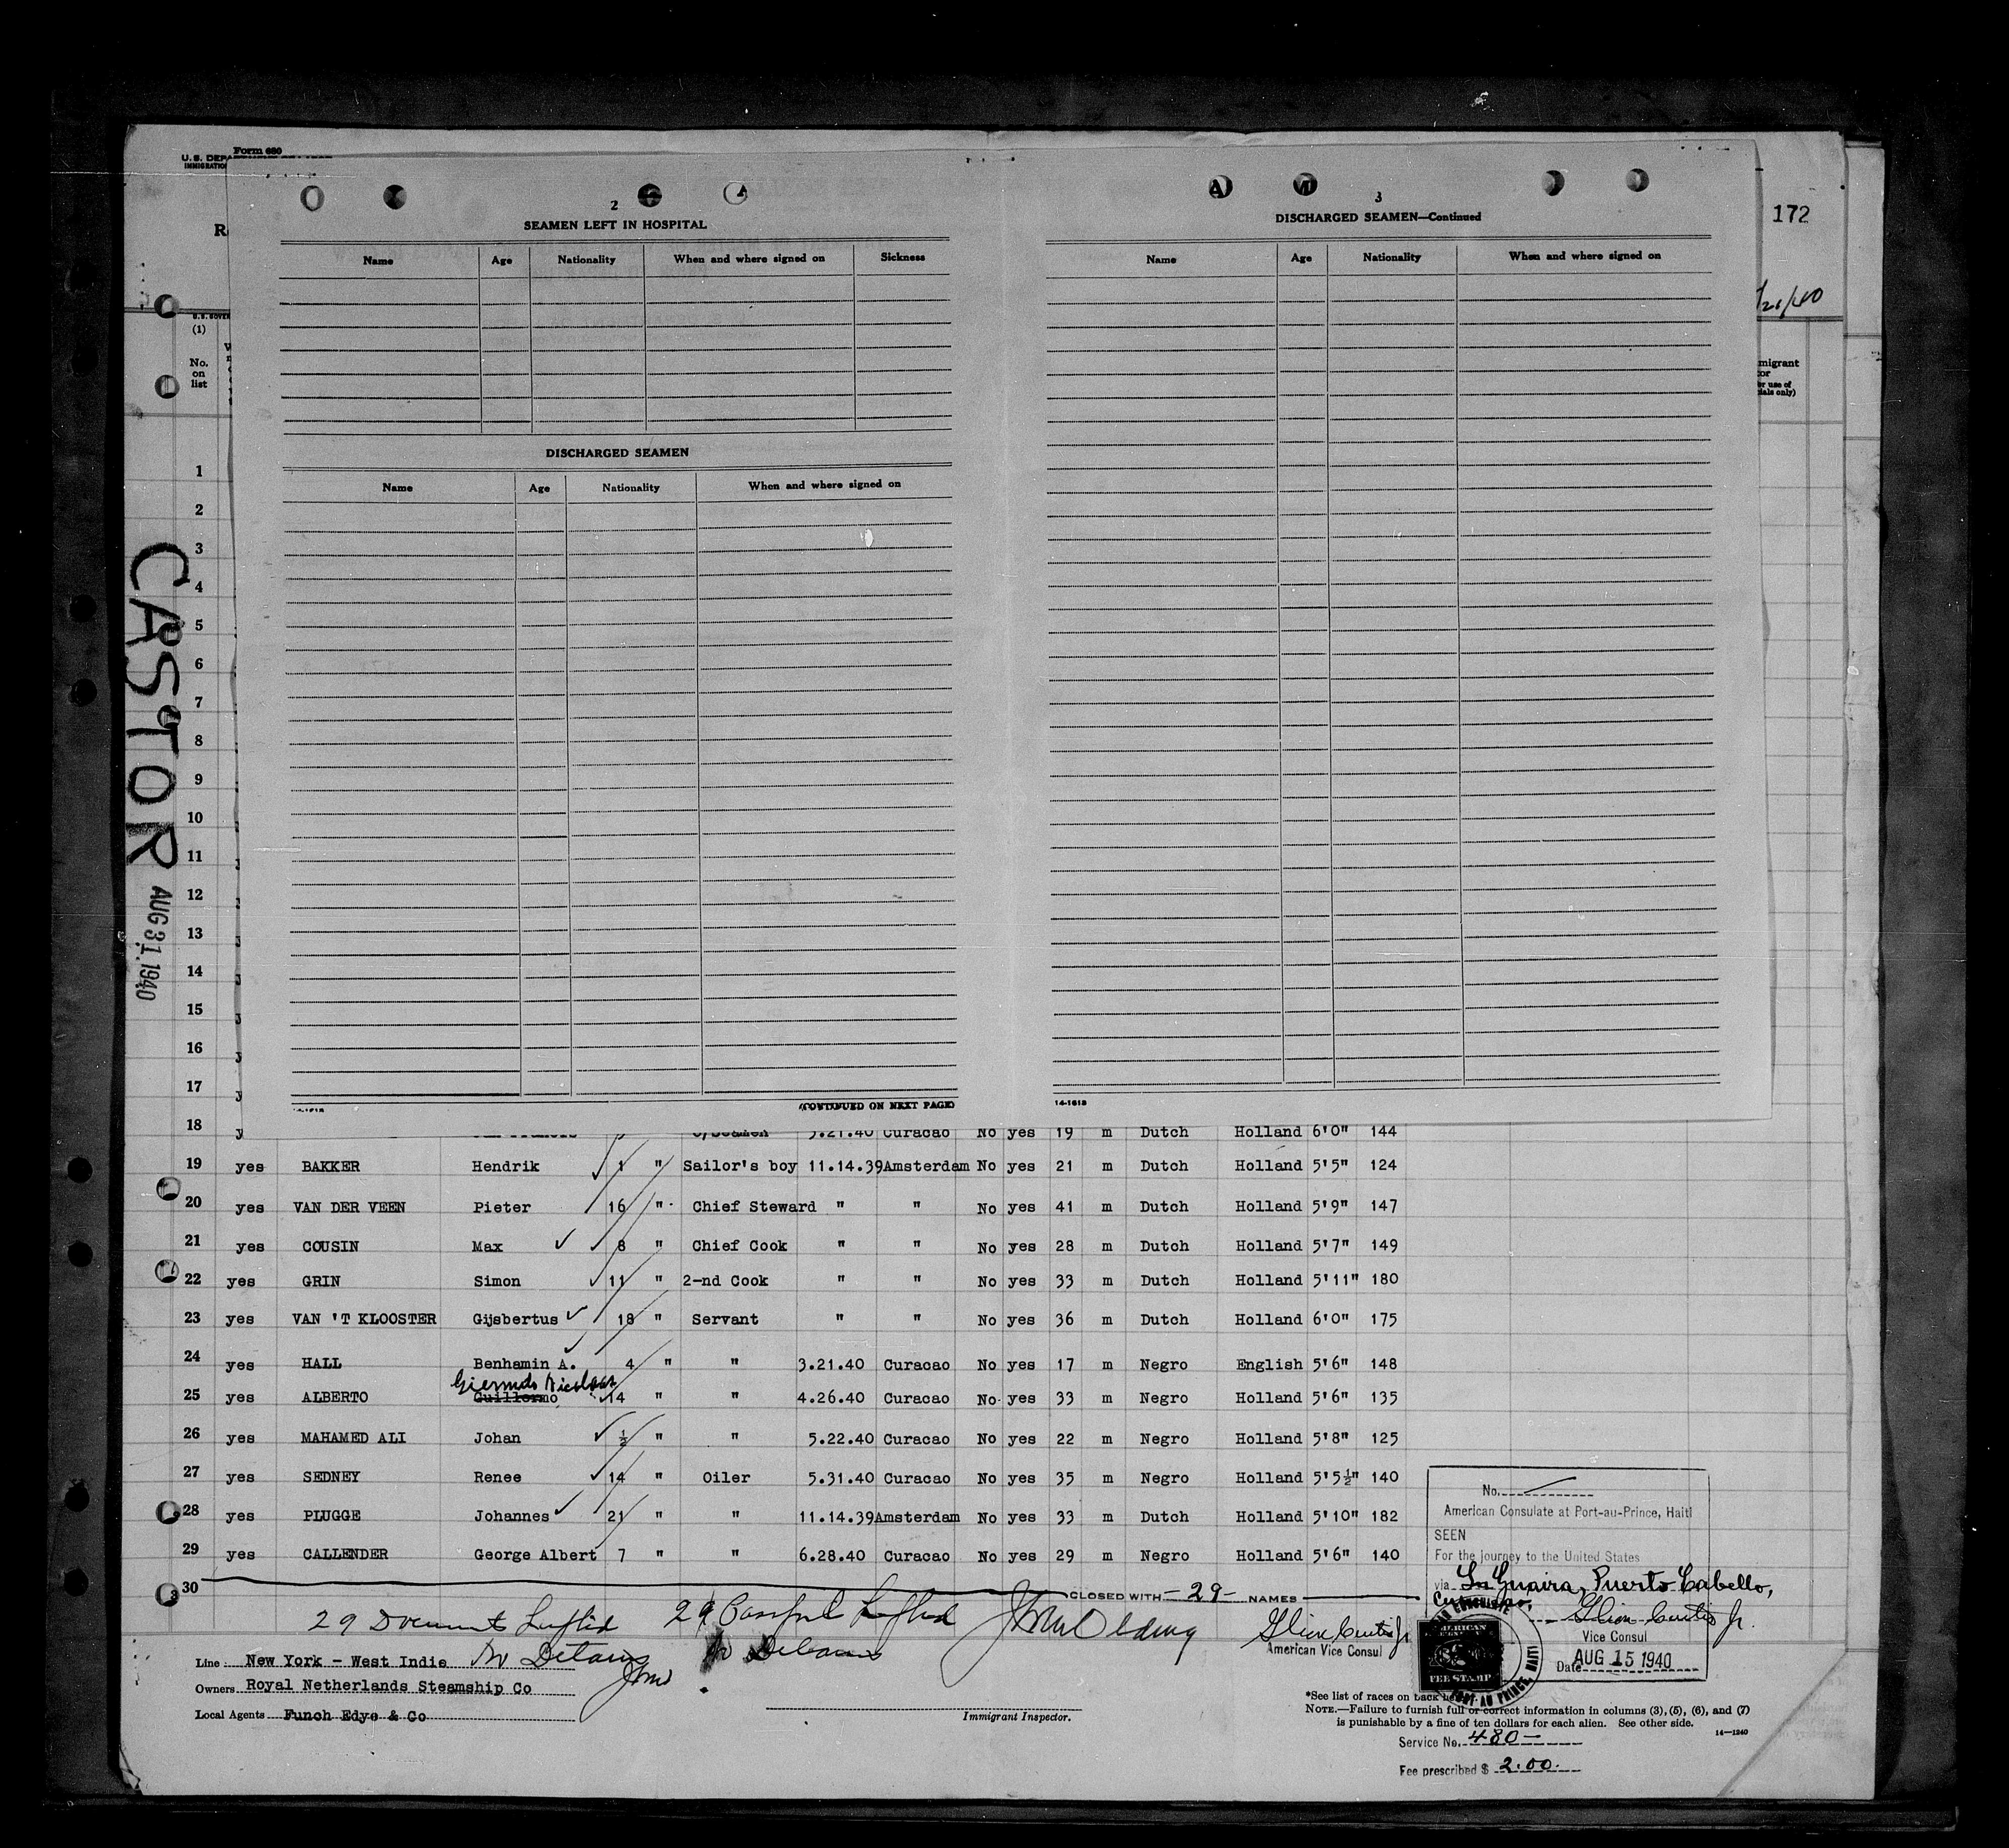 Form 680
U. S. DEPA
IMMIGRATION
R
172
/40
2
SEAMEN LEFT IN HOSPITAL
Name Age Nationality When and where signed on Sickness
DISCHARGED SEAMEN
Name Age Nationality When and where signed on
(CONTINUED ON NEXT PAGE)
3
DISCHARGED SEAMEN—Continued
Name Age Nationality When and where signed on
14-1613
(1)
No.
on
list
migrant
tor
er use of
ials only)
CASTOR
AUG 31 1940
1
2
3
4
5
6
7
8
9
10
11
12
13
14
15
16
17
18 5.21.40 Curacao No yes 19 m Dutch Holland 6'0" 144
19 yes BAKKER Hendrik 1 " Sailor's boy 11.14.39 Amsterdam No yes 21 m Dutch Holland 5'5" 124
20 yes VAN DER VEEN Pieter 16 " Chief Steward " " No yes 41 m Dutch Holland 5'9" 147
21 yes COUSIN Max 8 " Chief Cook " " No yes 28 m Dutch Holland 5'7" 149
22 yes GRIN Simon 11 " 2-nd Cook " " No yes 33 m Dutch Holland 5'11" 180
23 yes VAN 'T KLOOSTER Gijsbertus 18 " Servant " " No yes 36 m Dutch Holland 6'0" 175
24 yes HALL Benhamin A. 4 " " 3.21.40 Curacao No yes 17 m Negro English 5'6" 148
25 yes ALBERTO Guillermo 14 " " 4.26.40 Curacao No yes 33 m Negro Holland 5'6" 135
26 yes MAHAMED ALI Johan ½ " " 5.22.40 Curacao No yes 22 m Negro Holland 5'8" 125
27 yes SEDNEY Renee 14 " Oiler 5.31.40 Curacao No yes 35 m Negro Holland 5'5½" 140
28 yes PLUGGE Johannes 21 " " 11.14.39 Amsterdam No yes 33 m Dutch Holland 5'10" 182
29 yes CALLENDER George Albert 7 " " 6.28.40 Curacao No yes 29 m Negro Holland 5'6" 140
30
CLOSED WITH -29- NAMES
29 Document Lifted
29 Passport Lifted
No Detains
American Vice Consul
No.
American Consulate at Port-au-Prince, Haiti
SEEN
For the journey to the United States
via La Guaira, Puerto Cabello,
Curacao,
Vice Consul
Date AUG 15 1940
FEE STAMP
Line New York - West Indie
Owners Royal Netherlands Steamship Co
Local Agents Funch Edye & Co
Immigrant Inspector.
*See list of races on back
NOTE.—Failure to furnish full or correct information in columns (3), (5), (6), and (7)
is punishable by a fine of ten dollars for each alien. See other side.
14—1240
Service No. 480-
Fee prescribed $ 2.00.